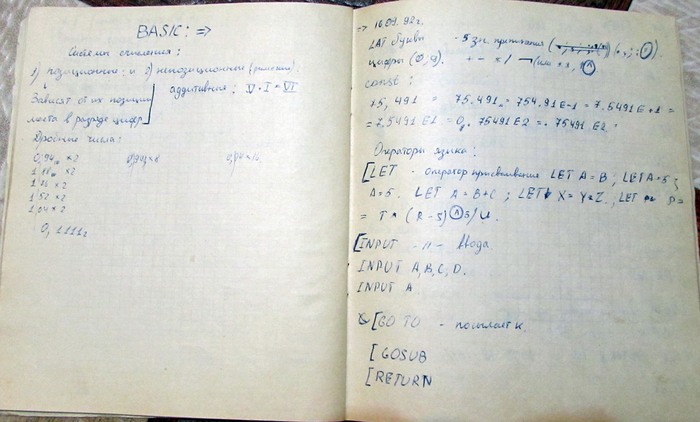 BASIC: =>
Системы счисления:
1) позиционной и 2) непозиционной (римский).
Зависят от их позиции
аддитивная: IV · I = VI
места в разряде цифр
Дробные числа:
0,94 × 2
1,88 × 2
1,76 × 2
1,52 × 2
1,04 × 2
0,94 × 8
0,94 × 16
0,1111₂
=> 16.09.92г.
LAT буквы - 5 зн. препинания
цифры (0,9). + - × / ¬ (или
const:
75,491 = 75.491 = 754.91E-1 = 7.5491E+1 =
= 7.5491E1 = 0.75491E2 = .75491E2.
Операторы языка:
[LET - оператор присваивания LET A=B; LET A=5;
A=5. LET A=B+C; LET X=Y=Z; LET P=
= T * (R-S) ^ 3/U.
[INPUT - " - Ввода.
INPUT A,B,C,D.
INPUT A
[GO TO - посылает к.
[GOSUB
[RETURN